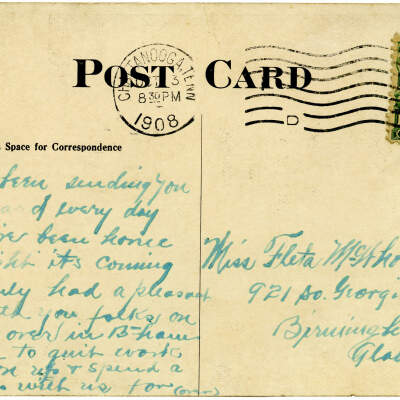 POST CARD
CHATTANOOGA, TENN
3
8 30 PM
1908
D
Space for Correspondence
been sending you
of every day
been home
its coming
had a pleasant
you folks on
over in B-ham
to quit work
up & spend a
with us for (over)
Miss Fleta
921 So. Georgi
Birmingh
Ala